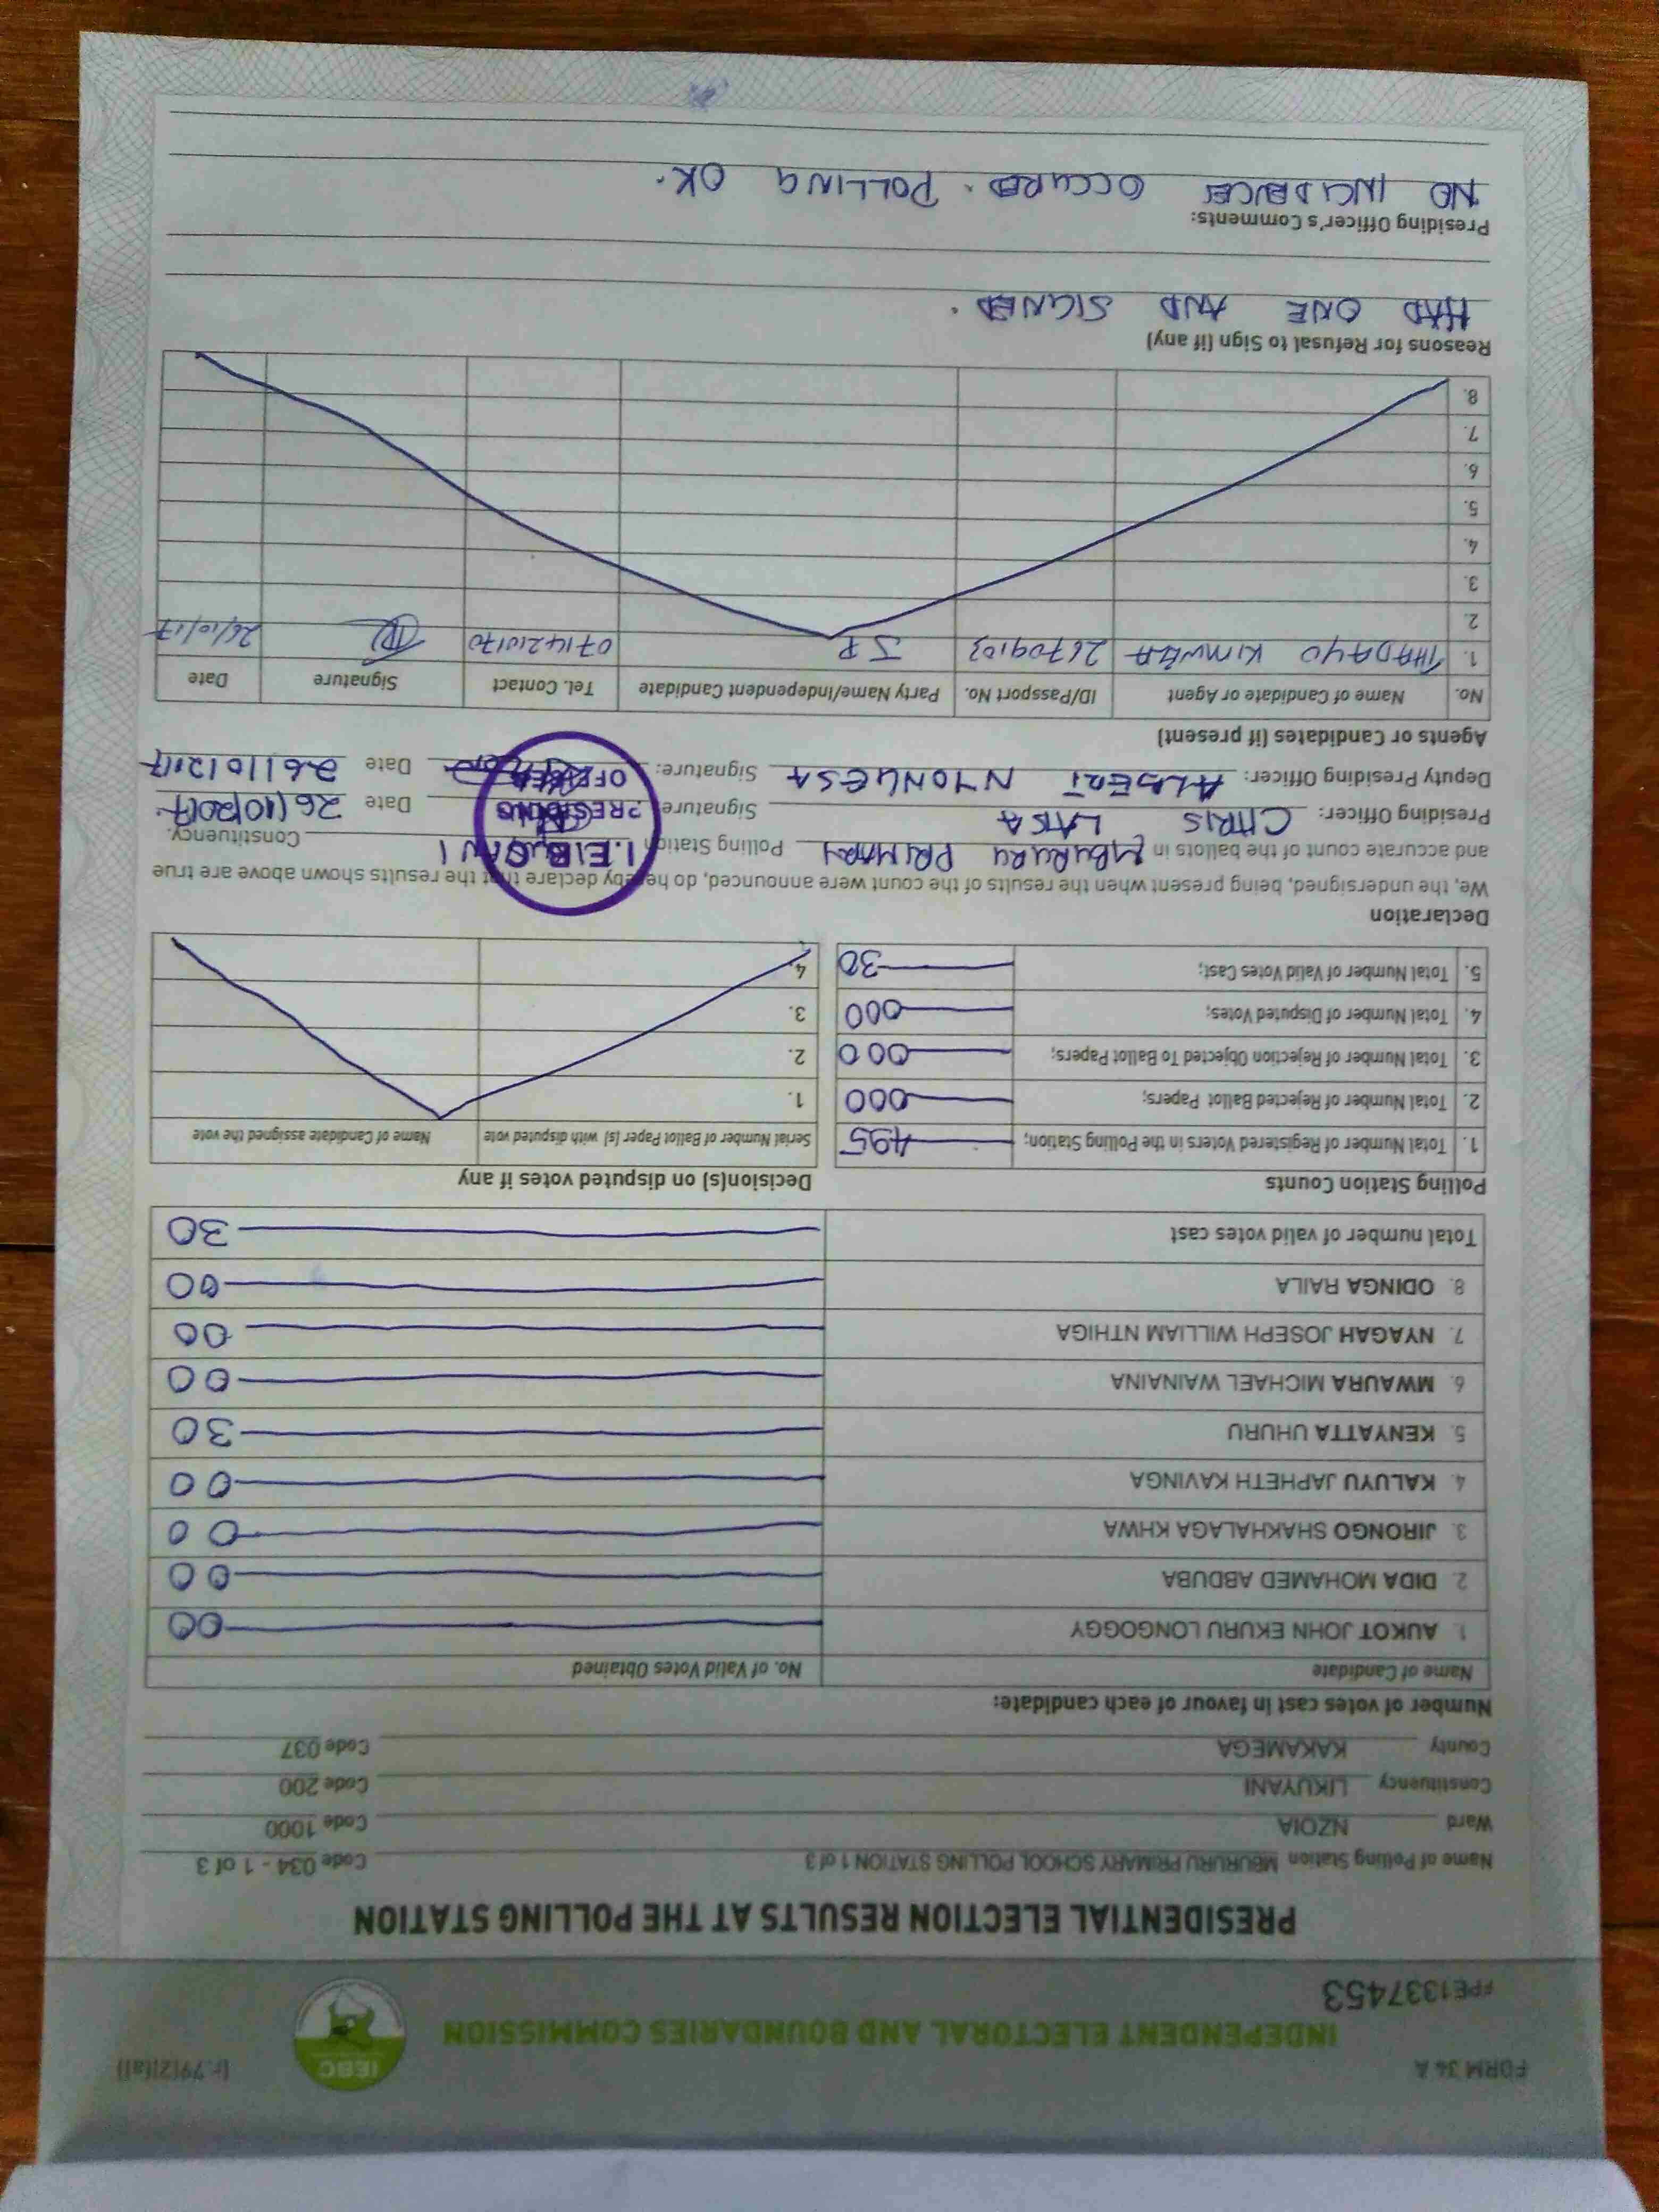 FORM 34 A
(r.79(2)(a))
IEBC
INDEPENDENT ELECTORAL AND BOUNDARIES COMMISSION
#PE1337453
PRESIDENTIAL ELECTION RESULTS AT THE POLLING STATION
Name of Polling Station MBURURU PRIMARY SCHOOL POLLING STATION 1 of 3 Code 034 - 1 of 3
Ward NZOIA Code 1000
Constituency LIKUYANI Code 200
County KAKAMEGA Code 037
Number of votes cast in favour of each candidate:
Name of Candidate No. of Valid Votes Obtained
1. AUKOT JOHN EKURU LONGOGGY 00
2. DIDA MOHAMED ABDUBA 00
3. JIRONGO SHAKHALAGA KHWA 00
4. KALUYU JAPHETH KAVINGA 00
5. KENYATTA UHURU 30
6. MWAURA MICHAEL WAINAINA 00
7. NYAGAH JOSEPH WILLIAM NTHIGA 00
8. ODINGA RAILA 00
Total number of valid votes cast 30
Polling Station Counts
1. Total Number of Registered Voters in the Polling Station; 495
2. Total Number of Rejected Ballot Papers; 000
3. Total Number of Rejection Objected To Ballot Papers; 000
4. Total Number of Disputed Votes; 000
5. Total Number of Valid Votes Cast; 30
Decision(s) on disputed votes if any
Serial Number of Ballot Paper (s) with disputed vote Name of Candidate assigned the vote
1.
2.
3.
4.
Declaration
We, the undersigned, being present when the results of the count were announced, do hereby declare that the results shown above are true
and accurate count of the ballots in MBURURU PRIMARY Polling Station Constituency.
Presiding Officer: CHRIS LATSA Signature: Date 26/10/2017.
Deputy Presiding Officer: ALBERT NYONGESA Signature: Date 26/10/2017
I.E.B.C
PRESIDING
OFFICER
Agents or Candidates (if present)
No. Name of Candidate or Agent ID/Passport No. Party Name/Independent Candidate Tel. Contact Signature Date
1. THADAYO KIMWEA 26709103 JP 0714210170 26/10/17
2.
3.
4.
5.
6.
7.
8.
Reasons for Refusal to Sign (if any)
HAD ONE AND SIGNED.
Presiding Officer's Comments:
NO INCIDENCES OCCURED. POLLING OK.